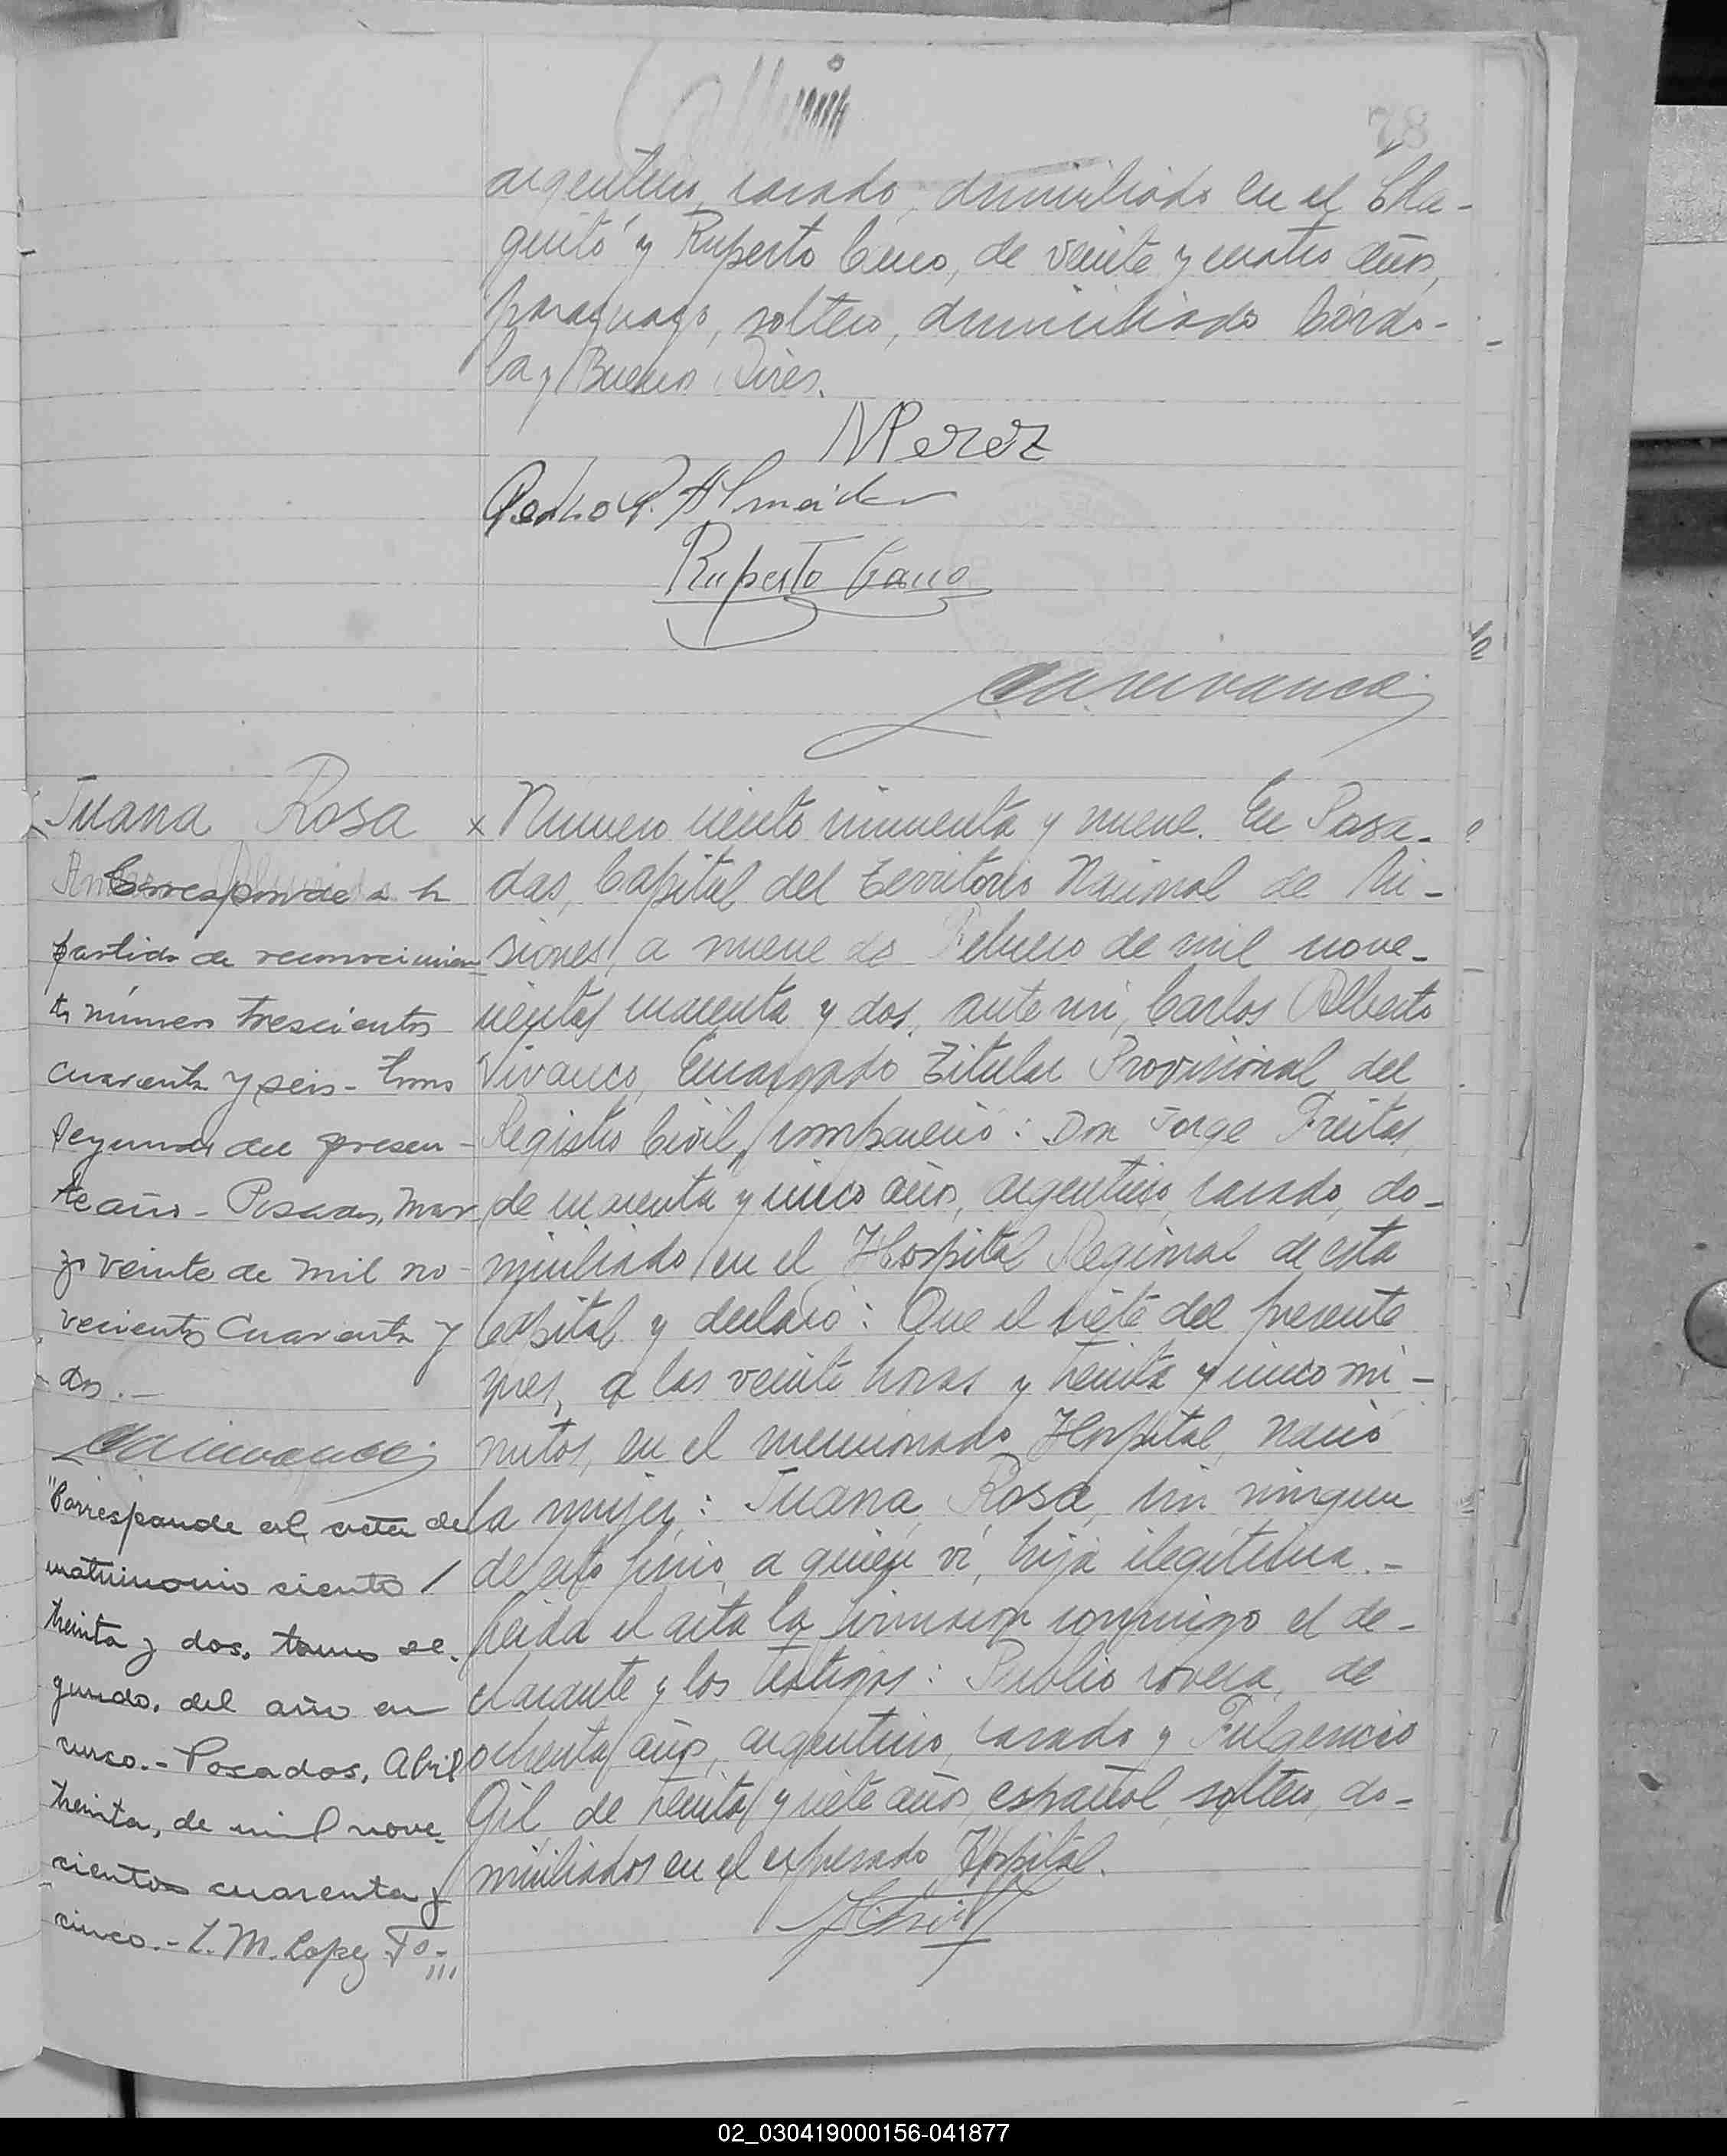 78
argentino, casado, domiciliado en el Cha-
quito y Ruperto Cano, de veinte y cuatro años,
paraguayo, soltero, domiciliado Córdo-
ba y Buenos Aires.
NPerez
Pedro P. Almeida
Ruperto Cano
CAVivanco
Juana Rosa
Corresponde a la
partida de reconocimien-
to número trescientos
cuarenta y seis - tomo
segundo del presen-
te año - Posadas, Mar
zo veinte de mil no-
vecientos Cuarenta y
dos.-
CAVivanco
"Corresponde al acta de
matrimonio ciento /
treinta y dos, tomo se-
gundo, del año en
curso.- Posadas, Abril
treinta, de mil nove-
cientos cuarenta y
cinco.- L. M. Lopez
x Numero ciento cincuenta y nueve. En Posa-
das, Capital del Territorio Nacional de Mi-
siones, a nueve de Febrero de mil nove-
cientos cuarenta y dos, ante mi, Carlos Alberto
Vivanco, Encargado Titular Provisional del
Registro Civil, compareció: Don Jorge Freitas,
de cuarenta y cinco años, argentino, casado, do-
miciliado en el Hospital Regional de esta
Capital y declaró: Que el siete del presente
mes, a las veinte horas y treinta y cinco mi-
nutos, en el mencionado Hospital, nació
la mujer: Juana Rosa,
a quien ví, hija ilegitima.-
Leida el acta la firmaron conmigo el de-
clarante y los testigos: Publio rovera, de
ochenta años, argentino, casado y Fulgencio
Gil, de treinta y siete años, español, soltero, do-
miciliados en el expresado Hospital.
02_030419000156-041877